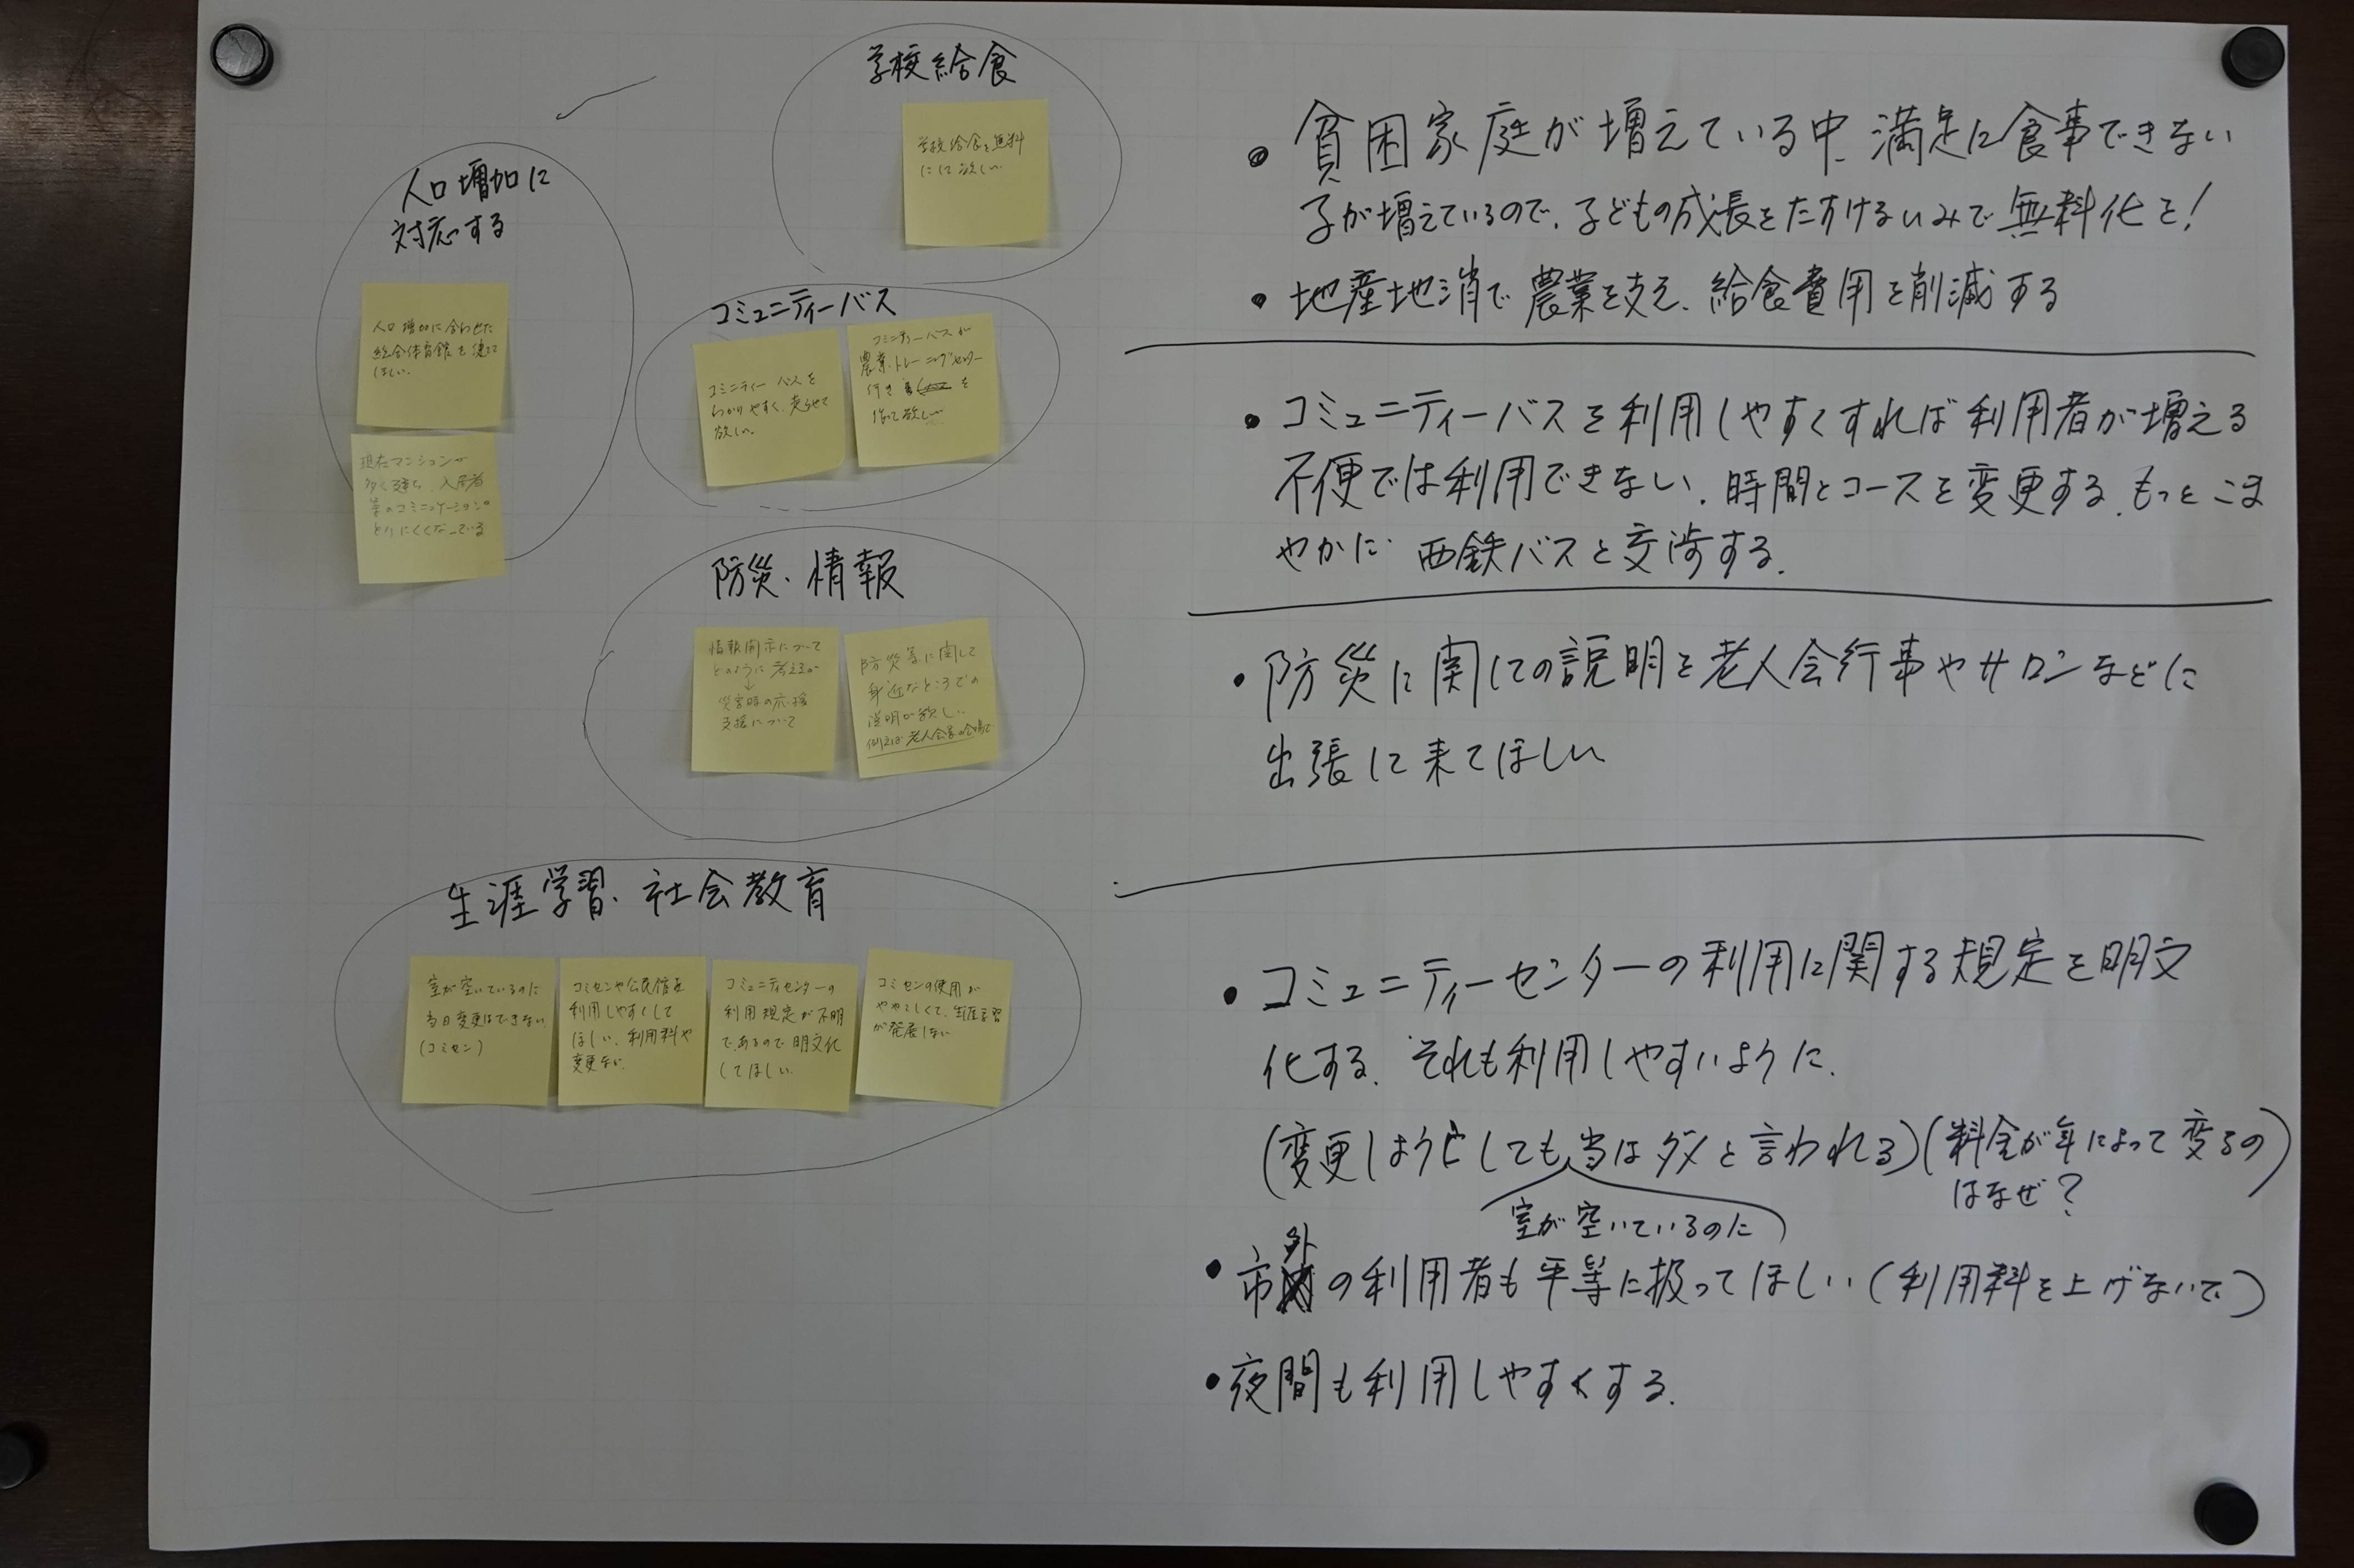 学校給食
学校給食を無料
にして欲しい
人口増加に
対応する
人口増加に合わせた
総合体育館を建てて
ほしい.
現在マンションが
多く建ち、入居者
とりにくくなっている
コミュニティーバス
コミニティーバスを
わかりやすく、走らせて
欲しい.
コミニティーバスが
農業トレーニングセンター
行き を
作って欲しい
防災・情報
情報開示について
どのように考えるか
↓
災害時の応援
支援について
防災等に関して
身近なところでの
説明が欲しい
例えば老人会等の会場で
生涯学習・社会教育
室が空いているのに
当日変更はできない
(コミセン)
コミセンや公民館を
利用しやすくして
ほしい、利用料や
変更など.
コミュニティセンターの
利用規定が不明
で、あるので明文化
してほしい.
コミセンの使用が
ややこしくて、生涯学習
が発展しない
• 貧困家庭が増えている中、満足に食事できない
子が増えているので、子どもの成長をたすけるいみで無料化を!
• 地産地消で農業を支え、給食費用を削減する
• コミュニティーバスを利用しやすくすれば利用者が増える
不便では利用できない、時間とコースを変更する、もっとこま
やかに 西鉄バスと交渉する.
• 防災に関しての説明を老人会行事やサロンなどに
出張して来てほしい
• コミュニティーセンターの利用に関する規定を明文
化する. それも利用しやすいように.
(変更しようとしても当はダメと言われる)(料金が年によって変るの
はなぜ?)
室が空いているのに
• 市外の利用者も平等に扱ってほしい(利用料を上げないで)
• 夜間も利用しやすくする.